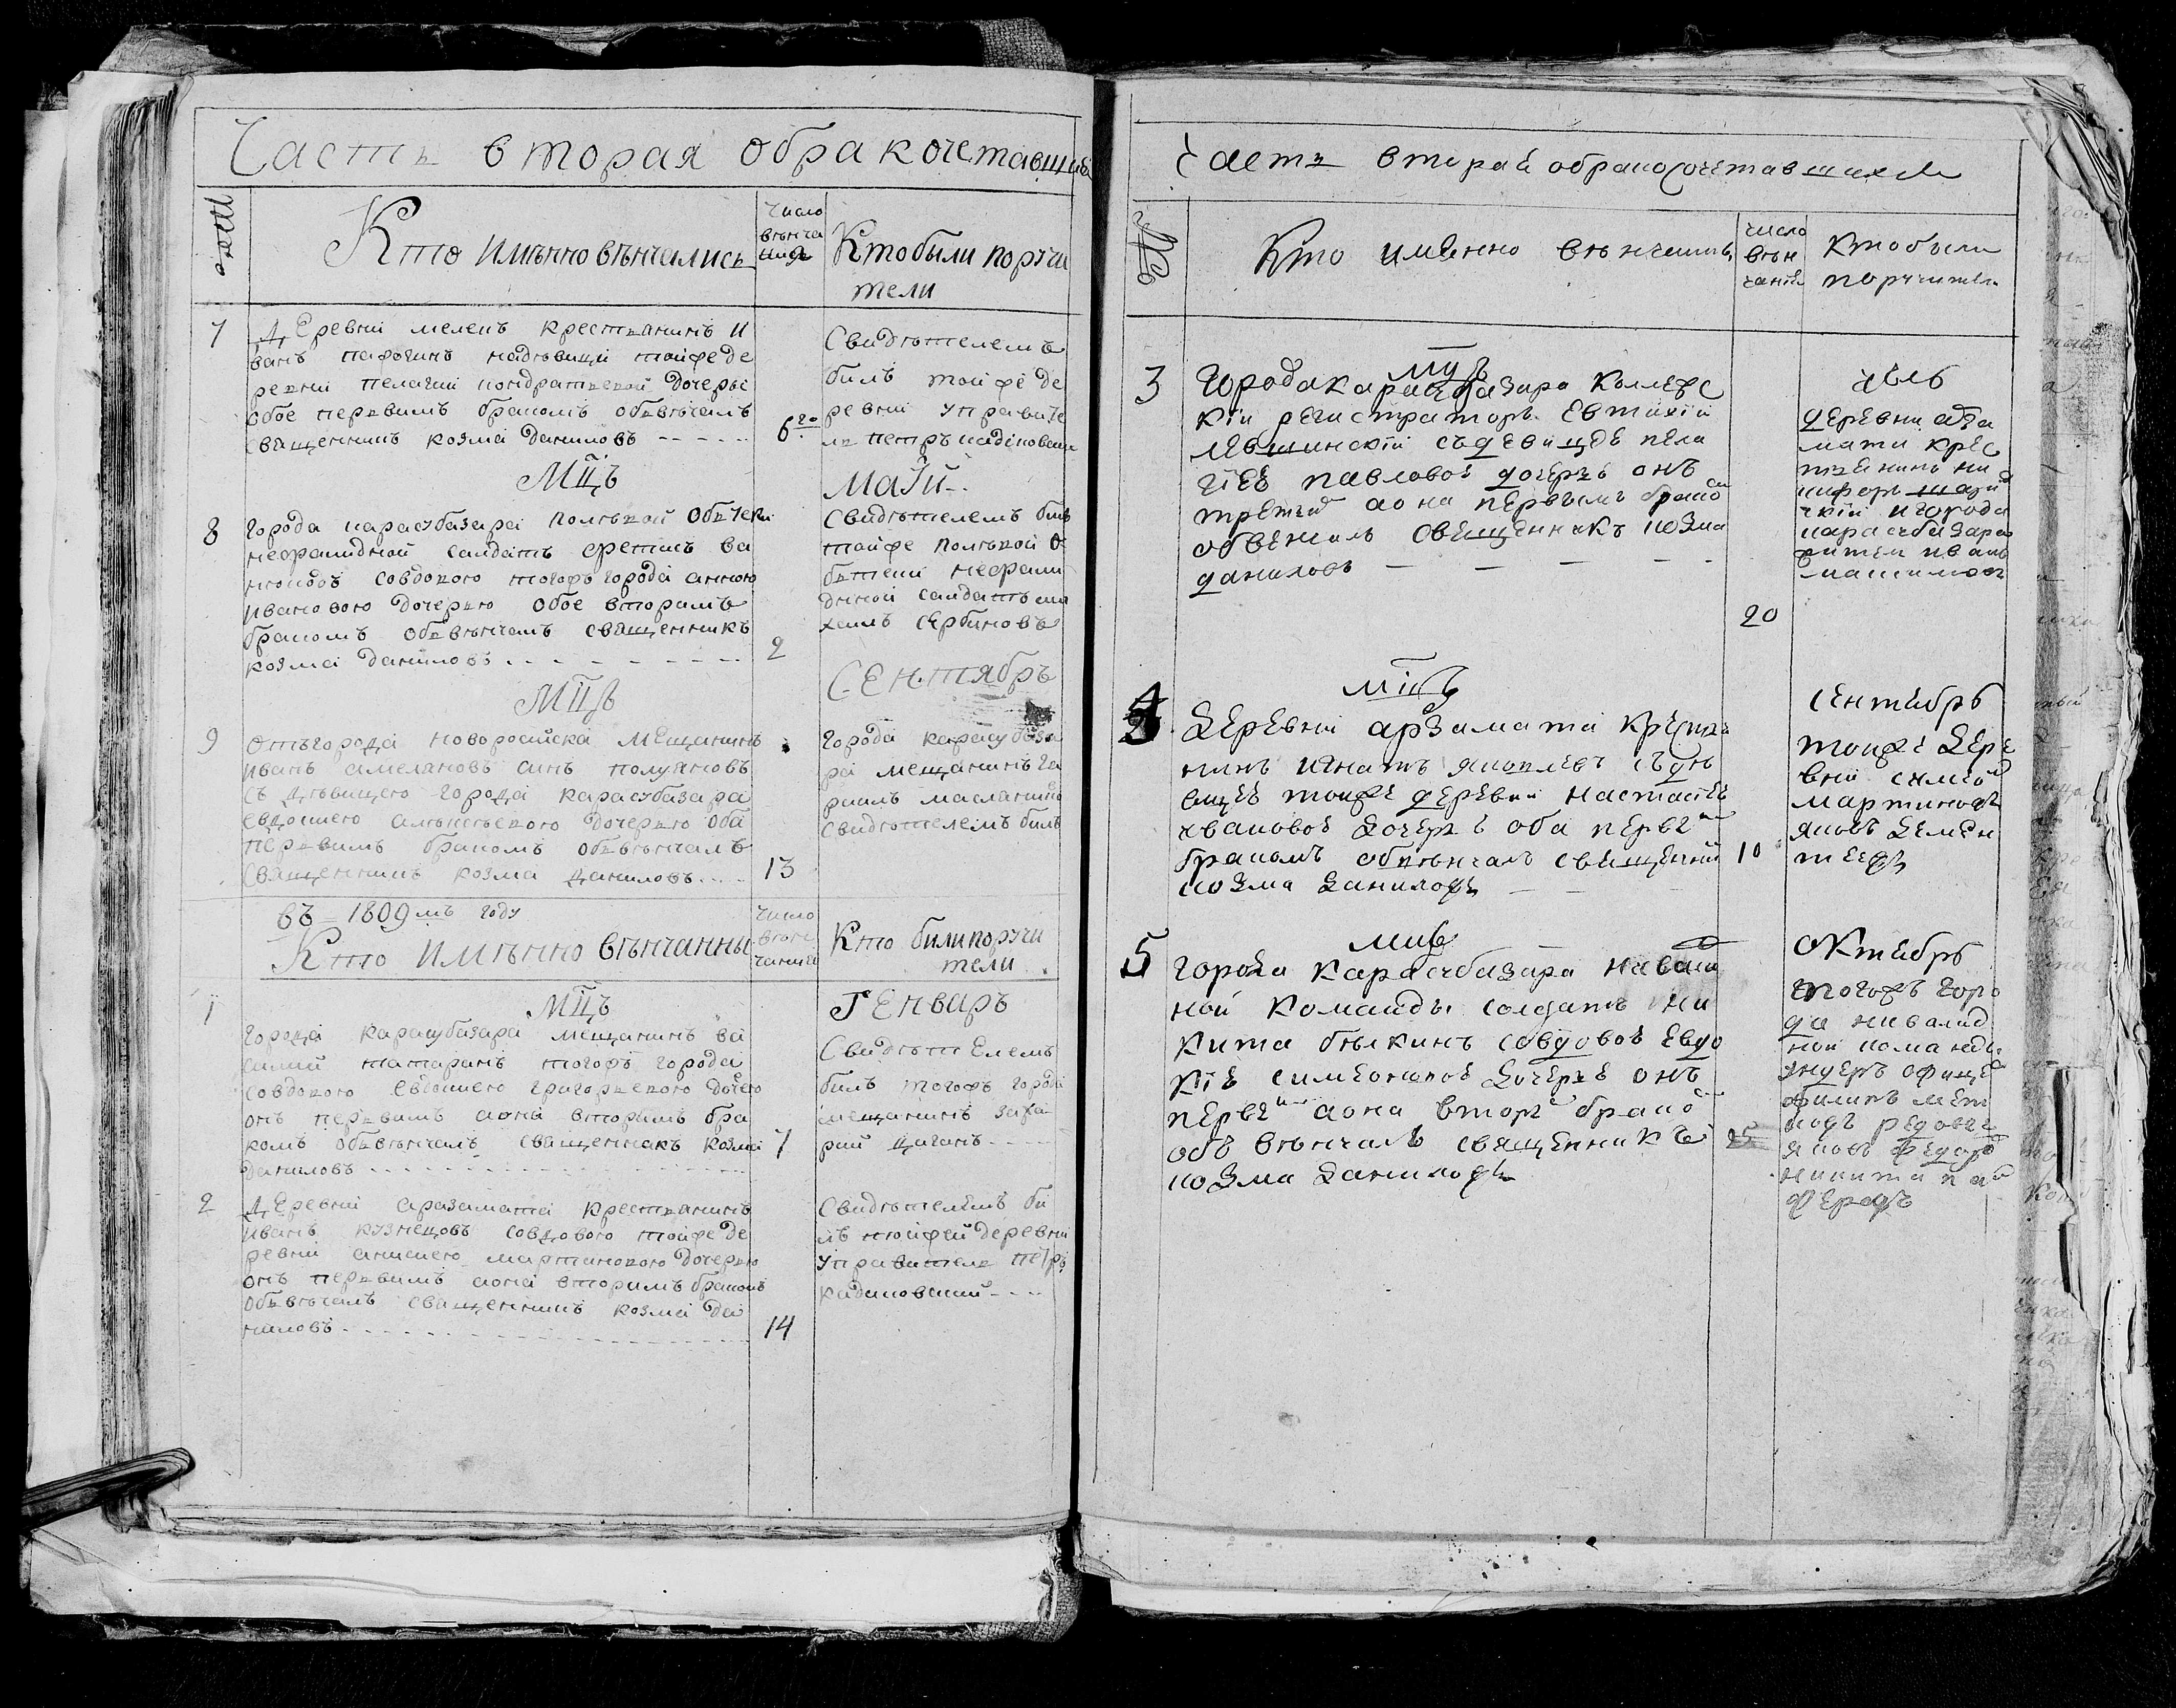 Часть вторая обракочетавшихъ
Кто имѣнно вѣнчались
число
вѣнча
ния
Кто были поручи
тели
7
Деревни мелекъ крестьанинъ И
ванъ надѣвици тойже де
ревни пелагии кондратьевой дочеры
обое первимъ бракомъ обвѣнчалъ
священникъ козма даниловъ
6го
Свидѣтелемъ
билъ тойже де
ревни управите
ль петръ
Мцъ
Маїй
8
города карасубазара полъвой обтеки
неѳалидной салдатъ
совдовою тогожъ города анною
Ивановою дочерью обое вторимъ
бракомъ обвѣнчалъ священникъ
козма даниловъ
2
Свидѣтелемъ билъ
тойже полъвой
салдатъ ми
хаилъ сербиновъ
Мцъ
Сентябръ
9
отъ города новоросийска мещанинъ
Иванъ амеляновъ синъ полуяновъ
съ дѣвицею города карасубазара
евдокиею алексѣевою дочерью оба
первимъ бракомъ обвѣнчалъ
Священникъ козма даниловъ
13
города карасубаза
ра мещанинъ га
рилъ
Свидѣтелемъ билъ
въ 1809мъ году
Кто Имѣнно вѣнчанны
число
вѣнч
чания
Кто били поручи
тели
Мцъ
Генваръ
1
города карасубазара мещанинъ ва
силий татаринъ тогожъ города
совдовою евдокиею григорьевою дочерю
онъ первимъ аона вторимъ бра
комъ обвѣнчалъ священникъ козма
даниловъ
7
Свидѣтелемъ
билъ тогожъ города
мещанинъ заха
рий циганъ
2
Деревни аразамата крестьанинъ
Иванъ кузнецовъ совдовою тойже де
ревни мартиновою дочерью
онъ первимъ аона вторимъ бракомъ
обвѣнчалъ священникъ козма да
ниловъ
14
Свидѣтелемъ би
лъ тойжей деревни
управителъ петръ
кадиковский
Часть вторая обракосочетавшихся
Кто именно вѣнчались
число
вѣн
чания
Кто были
поручители
Мцъ
июль
3
города карасубазара коллежс
кїи регистраторъ Евтихїй
Левшинскїй съдевицее пела
гїее павловое дочерье онъ
третьимъ аона первымъ бракомъ
обвенчалъ Священникъ козма
даниловъ
20
деревни арза
мати крес
тьенинъ ни
кифоръ
города
карасубазара
Мцъ
Сентябрь
4
деревни арзамати крестье
нинъ Игнатъ яковлевъ съдѣ
вицее тоиже деревни настасіее
ивановое дочерье оба первымъ
бракомъ обвѣнчалъ священникъ
козма даниловъ
10
тоиже дере
вни симеонъ
мартиновъ
яковъ демен
тиевъ
Мцъ
Октябрь
5
города карасубазара
ной команды солдатъ ни
кита белкинъ совдовое евдо
кїе симеоновое дочерье онъ
первымъ аона вторымъ бракомъ
обвѣнчалъ священникъ
козма даниловъ
25
тогожъ горо
да инвалид
ной команды
ундеръ офицеръ
филипъ
редовые
яковъ федоровъ
никита